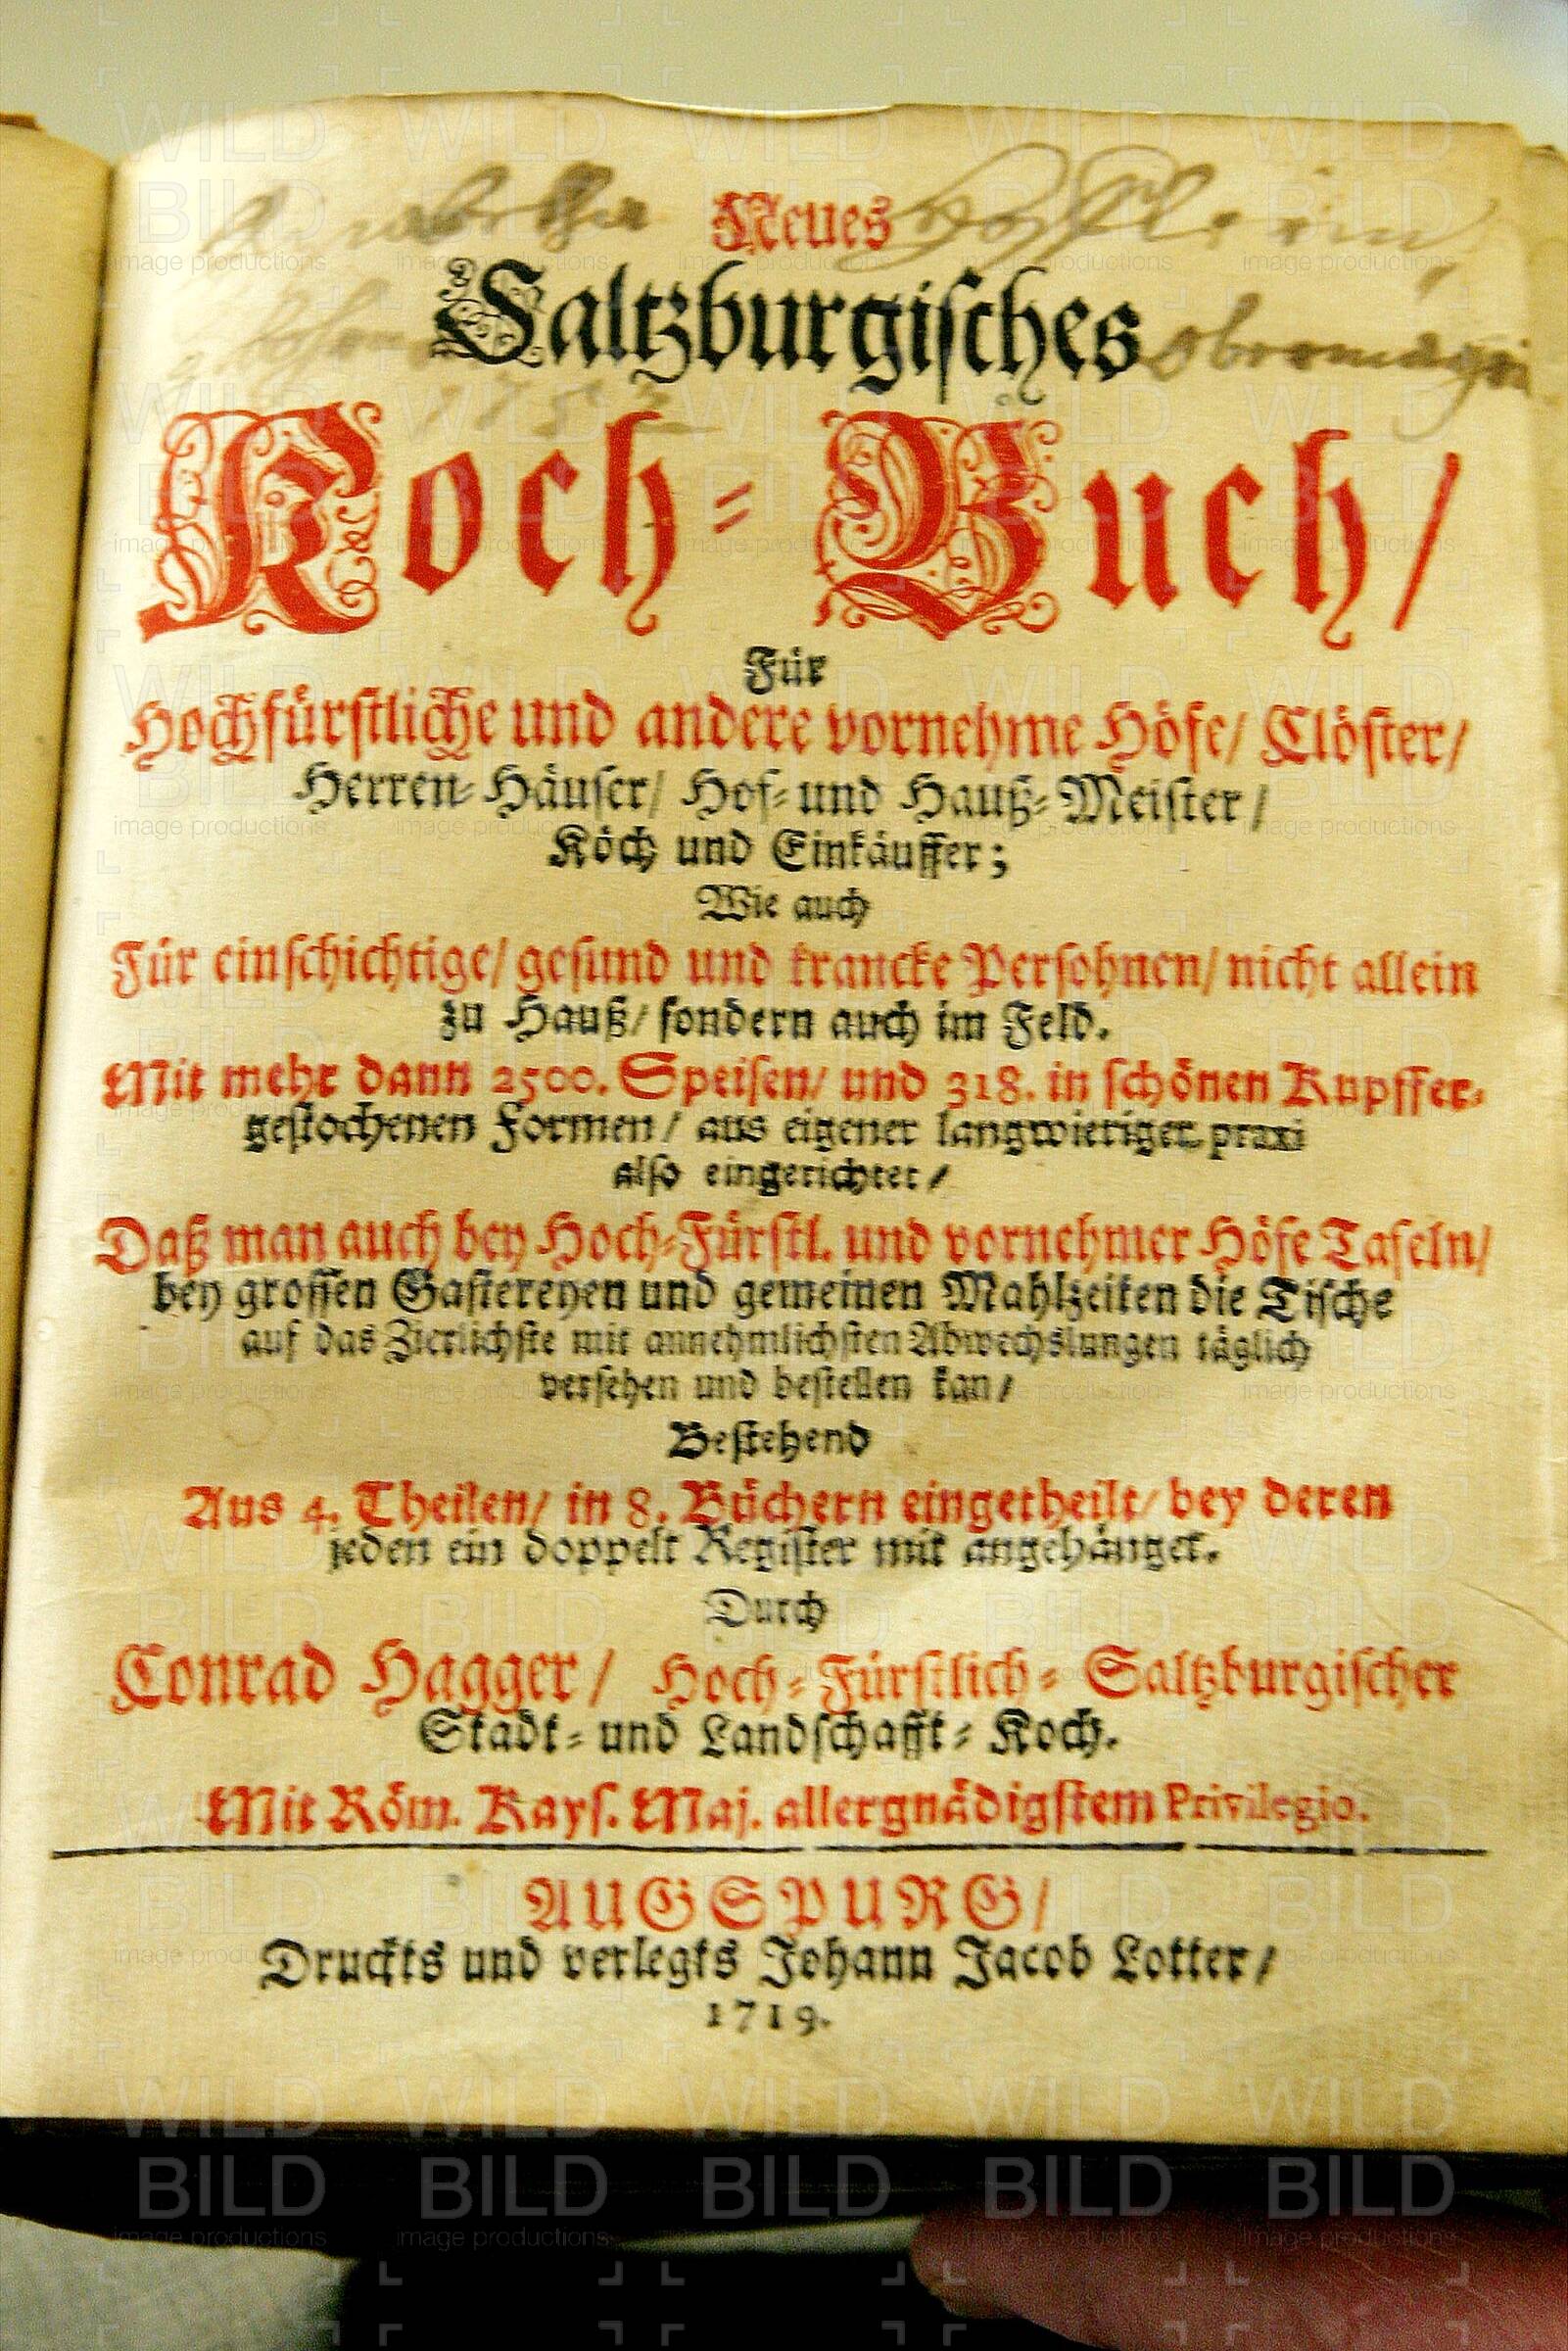 Neues
Saltzburgisches
Koch-Buch/
Für
Hochfürstliche und andere vornehme Höfe/ Clöster/
Herren-Häuser/ Hof- und Hauß-Meister/
Köch und Einkäuffer;
Wie auch
Für einschichtige/ gesund und krancke Persohnen/ nicht allein
zu Hauß/ sondern auch im Feld.
Mit mehr dann 2500. Speisen/ und 318. in schönen Kupffer-
gestochenen Formen/ aus eigener langwieriger praxi
also eingerichtet/
Daß man auch bey Hoch-Fürstl. und vornehmer Höfe Tafeln/
bey grossen Gastereyen und gemeinen Mahlzeiten die Tische
auf das Zierlichste mit annehmlichsten Abwechslungen täglich
versehen und bestellen kan/
Bestehend
Aus 4. Theilen/ in 8. Büchern eingetheilt/ bey deren
jeden ein doppelt Register mit angehänget.
Durch
Conrad Hagger/ Hoch-Fürstlich-Saltzburgischer
Stadt- und Landschafft-Koch.
Mit Röm. Kays. Maj. allergnädigstem Privilegio.
AUGSPURG/
Druckts und verlegts Johann Jacob Lotter/
1719.
WILD
BILD
image productions